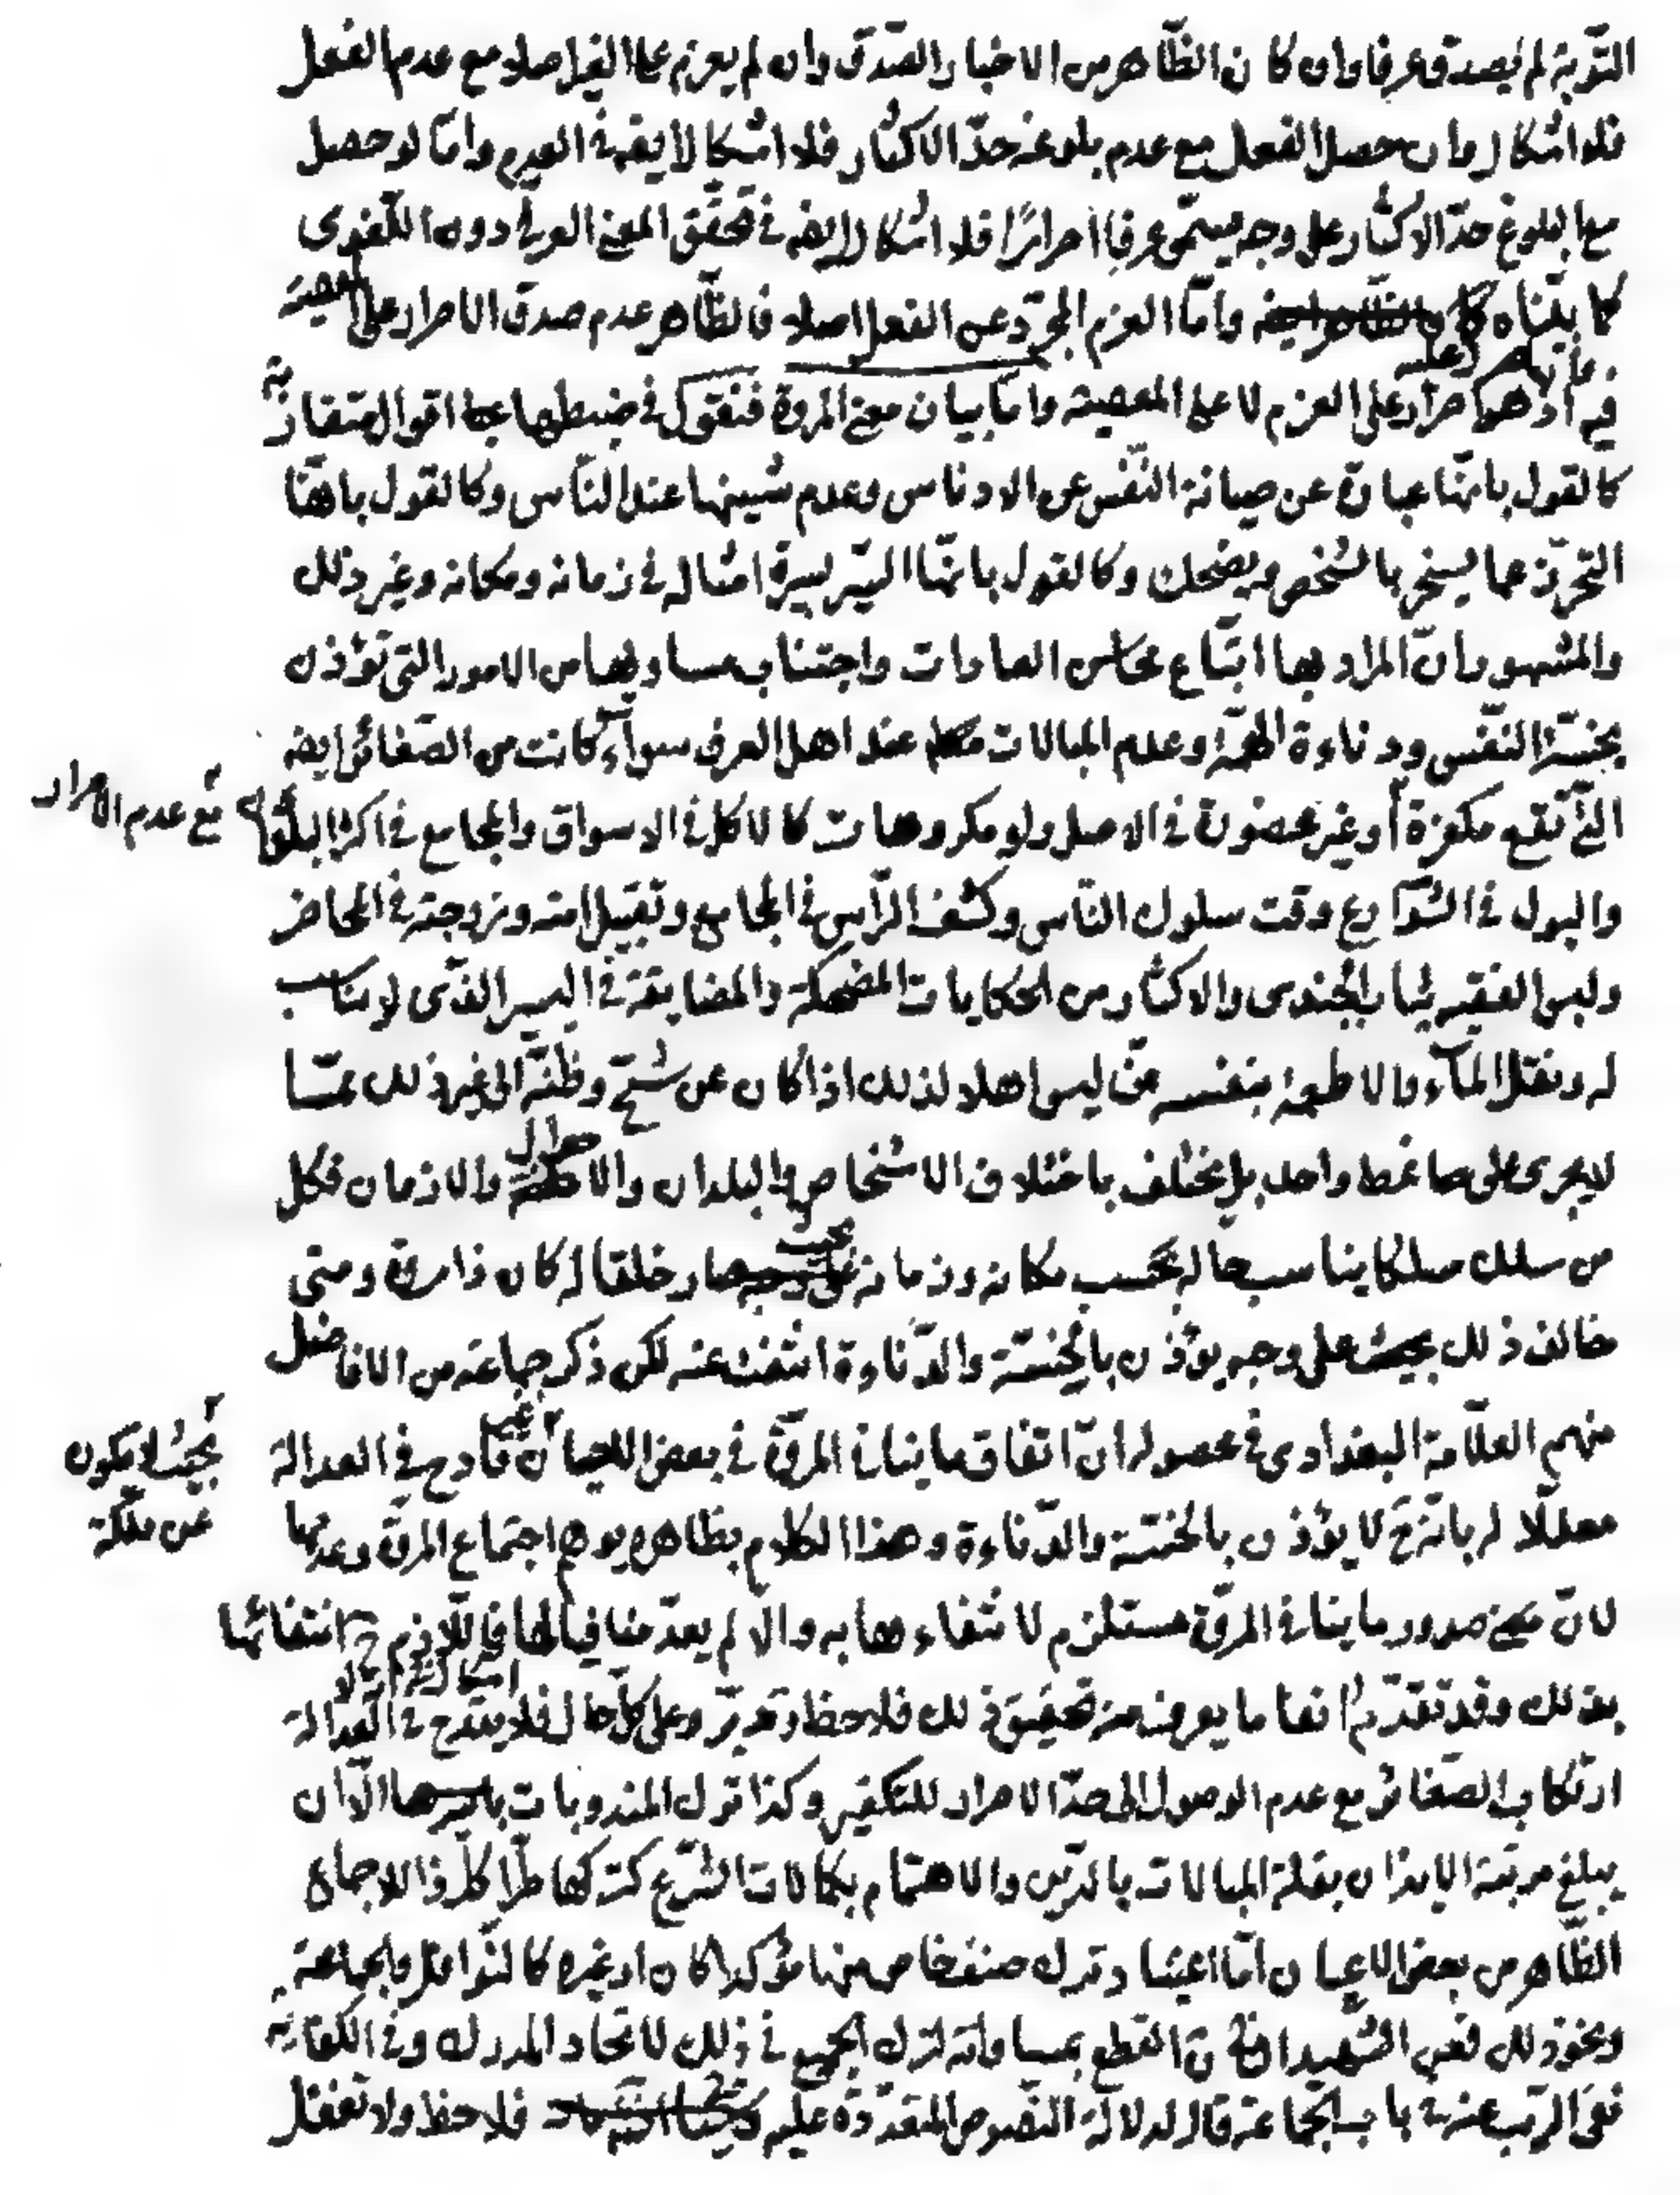 التّوبة لم يصدق عرفا وان كان الظّاهر من الاخبار الصّدق وان لم يعزم على الفعل اصلا مع عدم الفعل
فلا اشكال وان حصل الفعل مع عدم بلوغه حدّ الاكثار فلا اشكال ايضه في العدم وامّا لو حصل
مع البلوغ حدّ الاكثار على وجه يسمّى عرفا اصرارًا فلا اشكال ايضه في تحقّق المعنى العرفي دون اللّغوى
كما بيّناه وامّا العزم المجرّد عن الفعل اصلا فالظّاهر عدم صدق الاصرار على المعصية
فيه اذ هو اصرار على العزم لا على المعصية وامّا بيان معنى المروة فنقول في ضبطها على اقوال متقاربة
كالقول بانّها عبارة عن صيانة النّفس عن الادناس وعدم شينها عند النّاس وكالقول بانّها
التحرّز عما يسخر بالشخص به يضحك وكالقول بانّها السّير بسيرة امثاله في زمانه ومكانه وغير ذلك
والمشهور انّ المراد بها اتّباع محاسن العادات واجتناب مساويها من الامور التي تؤذن
بخسّة النّفس ودناءة الهمّة وعدم المبالات عند اهل العرف سواء كانت من الصّغائر ايضه
مع عدم الاصرار
الّتي تقع مكفرة او غير محضورة في الاصل ولو مكروهات كالاكل في الاسواق والمجامع في اكثر البلاد
والبول في الشّوارع وقت سلوك النّاس وكشف الرّأس في المجامع وتقبيل امته وزوجته في المحاضر
ولبس الفقيه ثياب الجندى والاكثار من الحكايات المضحكة والمضايقة في اليسير الذّى لا يناسب
له ونقل المآء والاطعمة بنفسه ممّن ليس اهلا لذلك اذا كان عن شحّ وظنّة الى غير ذلك ممّا
لا يجرى على نمط واحد بل يختلف باختلاف الاشخاص والبلدان والاحوال والازمان فكل
من سلك مسلكا يناسب حاله بحسب مكانه وزمانه بحيث صار خلقا له كان ذا مروة ومتى
خالف ذلك على وجه يؤذن بالخسّة والدّناءة انتفت عنه لكن ذكر جماعة من الافاضل
منهم العلّامة البغدادى في محصوله انّ اتفاق ما ينافي المروّة في بعض الاحيان غير قادح في العدالة
بحيث لا يكون
عن ملكة
معلّلا له بانّه ح لا يؤذن بالخسّة والدّناءة وهذا الكلام بظاهره يوهم اجتماع المروّة وعدمها
لانّ صدور ما ينافي المروّة مستلزم لانتفاءها به والّا لم يعدّ منافيا لها فاللّازم ح انتفائها
بذلك وقد تقدّم انفا ما يعرف منه تحقيق ذلك فلاحظ وتدبّر وعلى كلّ حال فلا يقدح في العدالة
ارتكاب الصّغائر مع عدم الوصول الى حدّ الاصرار للتكفير وكذا ترك المندوبات باسرها الّا ان
يبلغ مرتبة الايذان بقلة المبالات بالدّين والاهتمام بكمالات الشّرع كتركها طرّا كلّ ذا للاجماع
الظّاهر من بعض الاعيان امّا اعتياد ترك صنف خاص منها مؤكدا كان او غيره كالنّوافل والجماعة
ونحو ذلك فعن الشّهيد الثّاني القطع بمساواته لترك الجميع في ذلك لاتحاد المدرك وفي الكفاية
نفى الرّيب عنه في باب الجماعة قال لدلالة النّصوص المتعدّدة عليه فلاحظ ولا تغفل